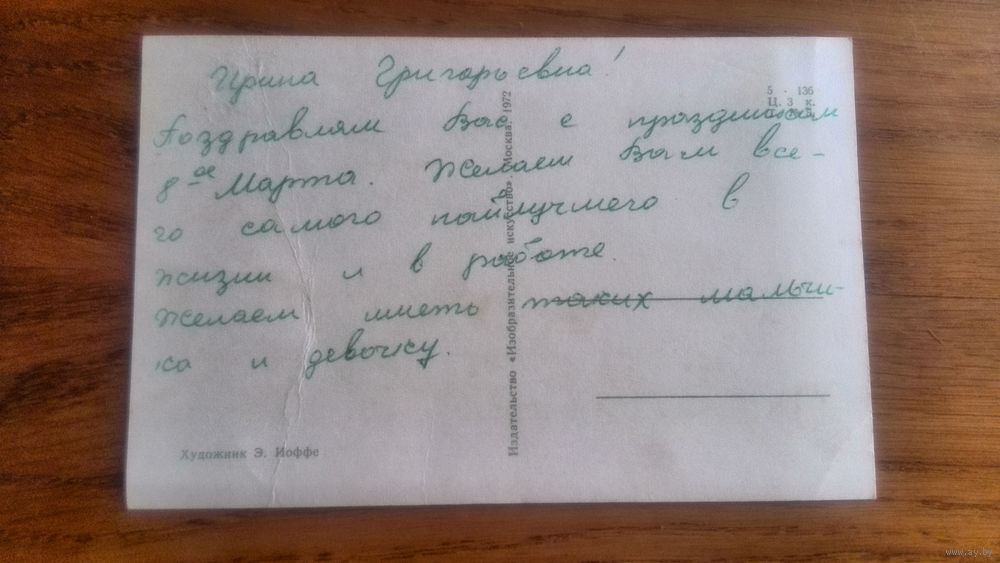 Ирина Григарьевна!
Поздравляем Вас с праздником
8-ое Марта. Желаем Вам все-
го самого наилучшего в
жизни и в работе.
Желаем иметь таких мальчи-
ка и девочку.
5 - 136
Ц. 3 к.
Издательство «Изобразительное искусство». Москва. 1972
Художник Э. Иоффе
www.ay.by